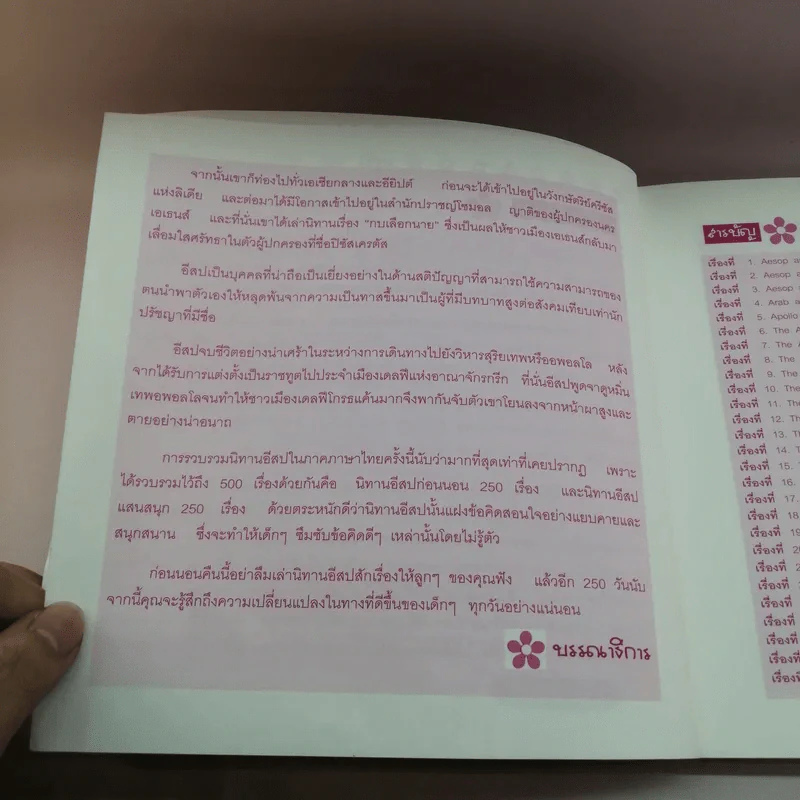 จากนั้นเขาก็ท่องไปทั่วเอเซียกลางและอียิปต์ ก่อนจะได้เข้าไปอยู่ในวังกษัตริย์ครีซัส
แห่งลิเดีย และต่อมาได้มีโอกาสเข้าไปอยู่ในสำนักปราชญ์โซมอล ญาติของผู้ปกครองนคร
เอเธนส์ และที่นั่นเขาได้เล่านิทานเรื่อง "กบเลือกนาย" ซึ่งเป็นผลให้ชาวเมืองเอเธนส์กลับมา
เลื่อมใสศรัทธาในตัวผู้ปกครองที่ชื่อปิซัสเครตัส
อีสปเป็นบุคคลที่น่าถือเป็นเยี่ยงอย่างในด้านสติปัญญาที่สามารถใช้ความสามารถของ
ตนนำพาตัวเองให้หลุดพ้นจากความเป็นทาสขึ้นมาเป็นผู้ที่มีบทบาทสูงต่อสังคมเทียบเท่านัก
ปรัชญาที่มีชื่อ
อีสปจบชีวิตอย่างน่าเศร้าในระหว่างการเดินทางไปยังวิหารสุริยเทพหรืออพอลโล หลัง
จากได้รับการแต่งตั้งเป็นราชทูตไปประจำเมืองเดลฟีแห่งอาณาจักรกรีก ที่นั่นอีสปพูดจาดูหมิ่น
เทพอพอลโลจนทำให้ชาวเมืองเดลฟีโกรธแค้นมากจึงพากันจับตัวเขาโยนลงจากหน้าผาสูงและ
ตายอย่างน่าอนาถ
การรวบรวมนิทานอีสปในภาคภาษาไทยครั้งนี้นับว่ามากที่สุดเท่าที่เคยปรากฏ เพราะ
ได้รวบรวมไว้ถึง 500 เรื่องด้วยกันคือ นิทานอีสปก่อนนอน 250 เรื่อง และนิทานอีสป
แสนสนุก 250 เรื่อง ด้วยตระหนักดีว่านิทานอีสปนั้นแฝงข้อคิดสอนใจอย่างแยบคายและ
สนุกสนาน ซึ่งจะทำให้เด็กๆ ซึมซับข้อคิดดีๆ เหล่านั้นโดยไม่รู้ตัว
ก่อนนอนคืนนี้อย่าลืมเล่านิทานอีสปสักเรื่องให้ลูกๆ ของคุณฟัง แล้วอีก 250 วันนับ
จากนี้คุณจะรู้สึกถึงความเปลี่ยนแปลงในทางที่ดีขึ้นของเด็กๆ ทุกวันอย่างแน่นอน
บรรณาธิการ
สารบัญ
เรื่องที่ 1. Aesop
เรื่องที่ 2. Aesop
เรื่องที่ 3. Aesop
เรื่องที่ 4. Arab
เรื่องที่ 5. Apollo
เรื่องที่ 6. The
เรื่องที่ 7. The
เรื่องที่ 8. The
เรื่องที่ 9. The
เรื่องที่ 10. The
เรื่องที่ 11. The
เรื่องที่ 12. The
เรื่องที่ 13.
เรื่องที่ 14.
เรื่องที่ 15.
เรื่องที่ 16.
เรื่องที่ 17.
เรื่องที่ 18
เรื่องที่ 19
เรื่องที่
เรื่องที่
เรื่องที่
เรื่องที่
เรื่องที่
เรื่องที่
เรื่องที่
เรื่องที่